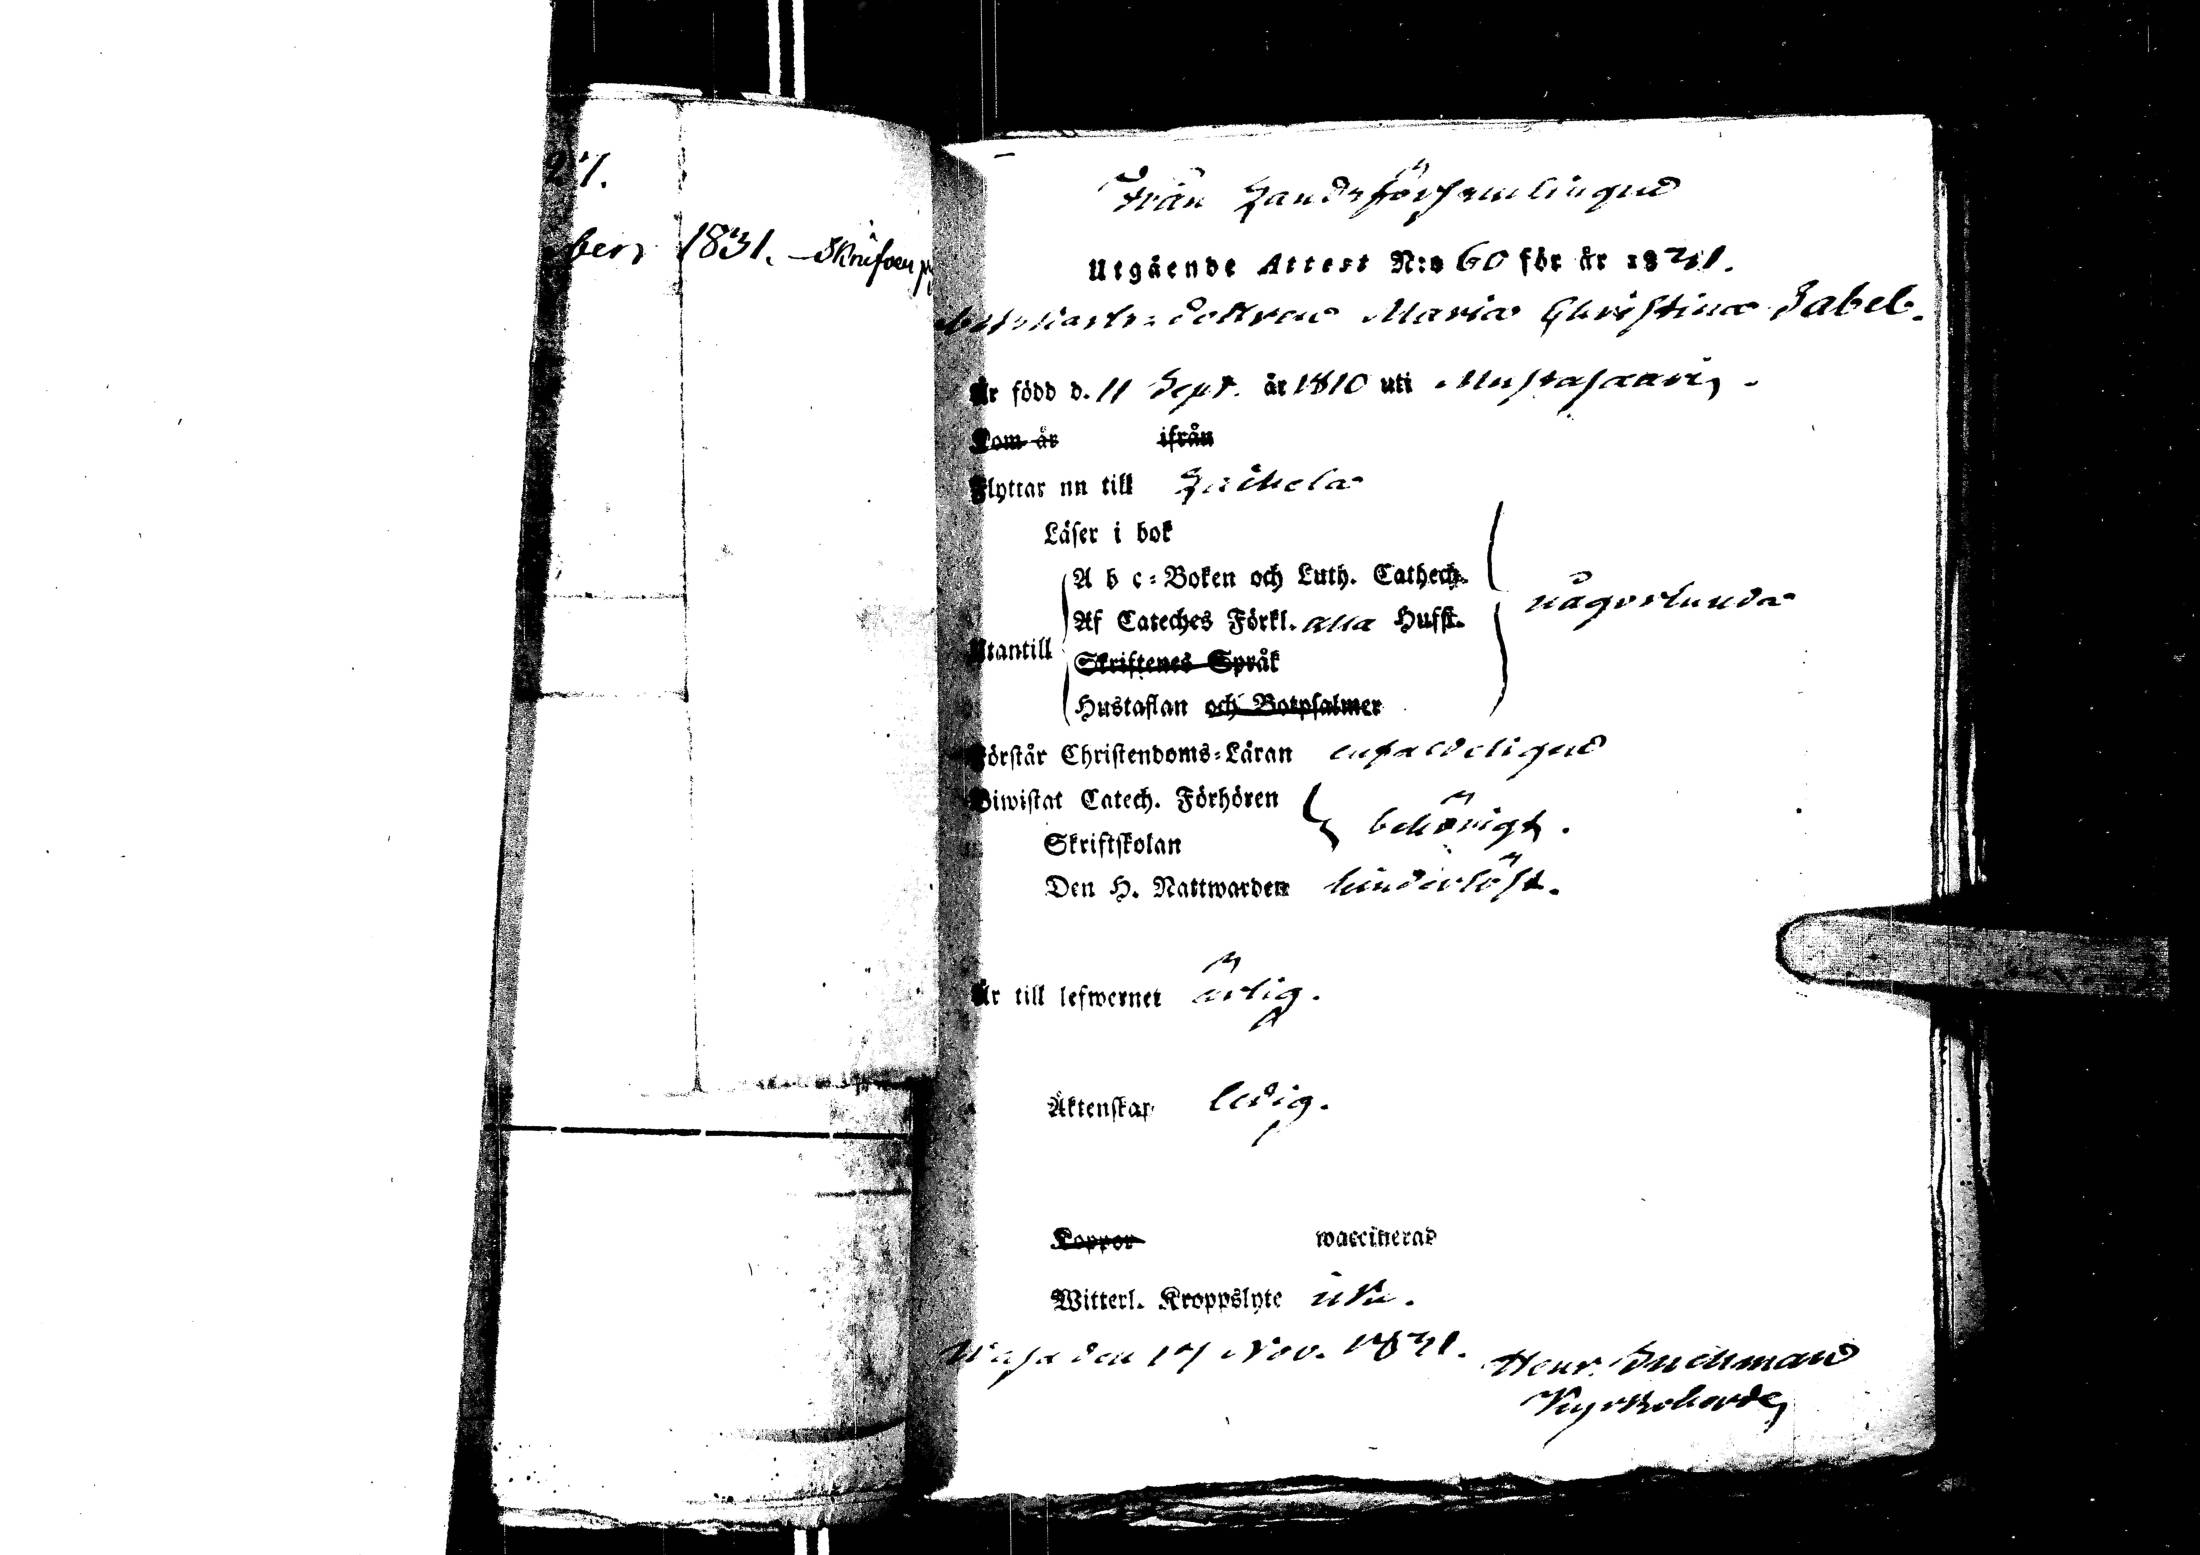 27.
ber 1831.
Från Landsförsamlingen
Utgående Attest N:o 60 för år 1831.
dottren Maria Christina Sabel.
Är född d. 11 Sept. år 1810 uti Mustasaari,
Kom år ifrån
Flyttar nu till Laihela
Läser i bok
A b c-Boken och Luth. Cathech.
Af Cateches Förkl. alla Hufst. någorlunda
Utantill
Skriftenes Språk
Hustaflan och Botpsalmer
Förstår Christendoms-Läran enfaldeligen
Biwistat Catech. Förhören
behörigt.
Skriftskolan
Den H. Nattwarden hinderlöst.
Är till lefwernet ärlig.
Äktenskap ledig.
Koppor waccinerad
Witterl. Kroppslyte icke.
Wasa den 17 Nov. 1831. Henr. Backman
Kyrkoherde